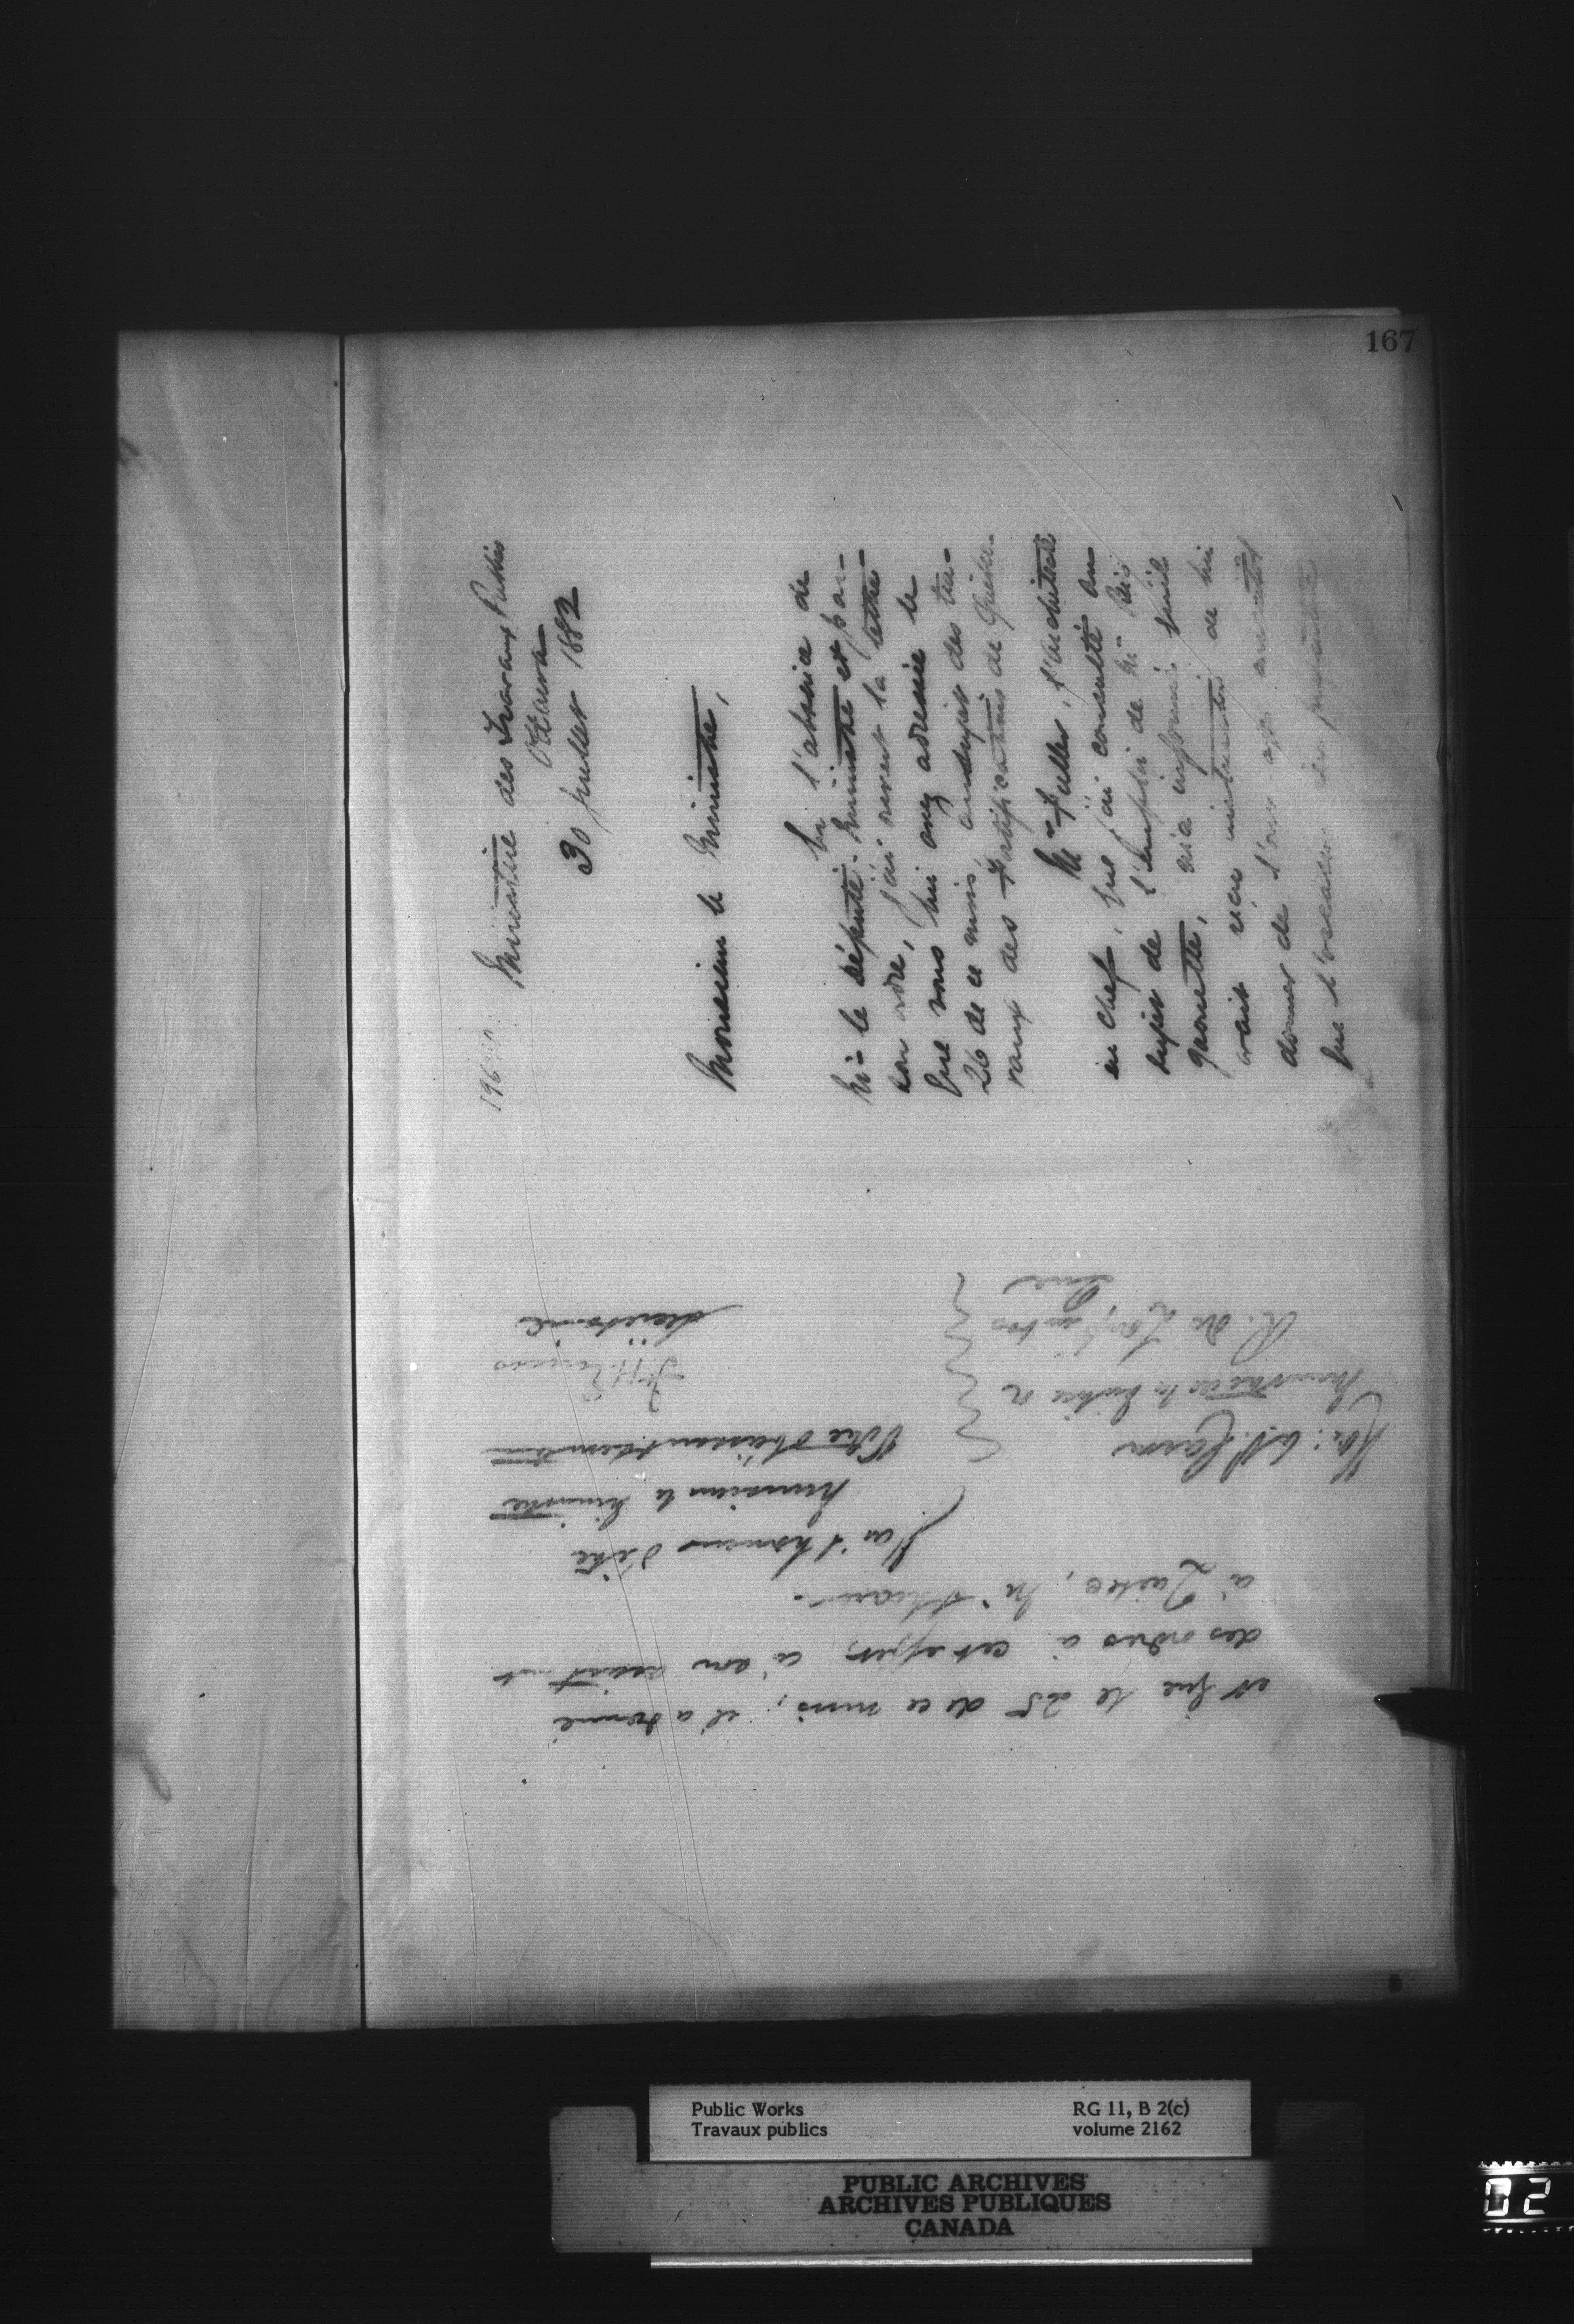 167
Ministère des Travaux Publics
Ottawa
30 juillet 1882
Monsieur le Ministre,
En l'absence de
Mr le Député Ministre et par
son ordre, j'ai ouvert la lettre
que vous lui avez adressée le
26 de ce mois, au sujet des tra-
vaux des Fortifications de Québec.
Mr Fuller, l'architecte
en chef, que j'ai consulté au
sujet de l'emploi de Mr
m'a informé qu'il
avait reçu instruction de lui
donner de l'ouvrage aussitôt
que l'occasion
et que le 25 de ce mois, il a donné
des ordres à cet effet, à son assistant
à Québec, Mr
J'ai l'honneur d'être
Monsieur le Ministre
Votre obéissant serviteur
F. H. Ennis
Secrétaire
Hon: 
Ministre de la Milice &
R. du Loup en bas
Que
Public Works
Travaux publics
RG 11, B 2(c)
volume 2162
PUBLIC ARCHIVES
ARCHIVES PUBLIQUES
CANADA
02